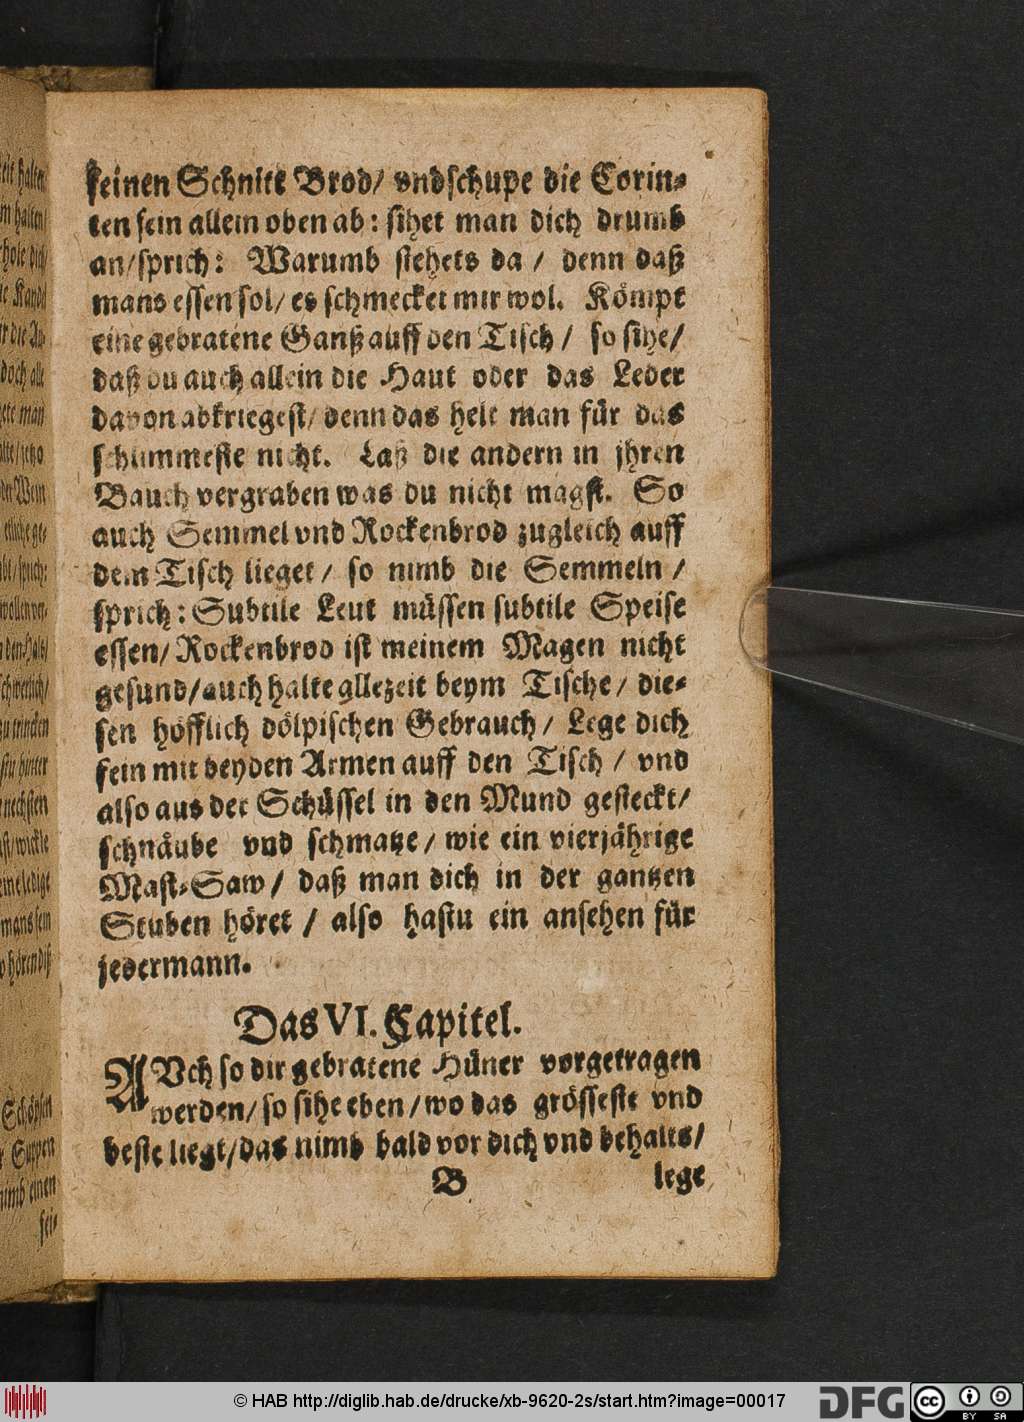 feinen Schnitt Brod/ vndschupe die Corin-
ten fein allein oben ab: sihet man dich drumb
an/sprich: Warumb stehets da / denn daß
mans essen sol/ es schmecket mir wol. Kömpt
eine gebratene Ganß auff den Tisch / so sihe/
daß du auch allein die Haut oder das Leder
davon abkriegest/ denn das helt man für das
schlimmeste nicht. Laß die andern in jhren
Bauch vergraben was du nicht magst. So
auch Semmel vnd Rockenbrod zugleich auff
dem Tisch lieget / so nimb die Semmeln /
sprich: Subtile Leut müssen subtile Speise
essen/ Rockenbrod ist meinem Magen nicht
gesund/auch halte allezeit beym Tische/ die-
sen höfflich dölpischen Gebrauch/ Lege dich
fein mit beyden Armen auff den Tisch / vnd
also aus der Schüssel in den Mund gesteckt/
schnäube vnd schmatze/ wie ein vierjährige
Mast-Saw/ daß man dich in der gantzen
Stuben höret / also hastu ein ansehen für
jedermann.
Das VI. Capitel.
AVch so dir gebratene Hüner vorgetragen
werden/ so sihe eben/wo das grösseste vnd
beste liegt/das nimb bald vor dich vnd behalts/
B lege
Schöpsen
Suppen
nimb einen
fei-
© HAB http://diglib.hab.de/drucke/xb-9620-2s/start.htm?image=00017
DFG
cc BY SA